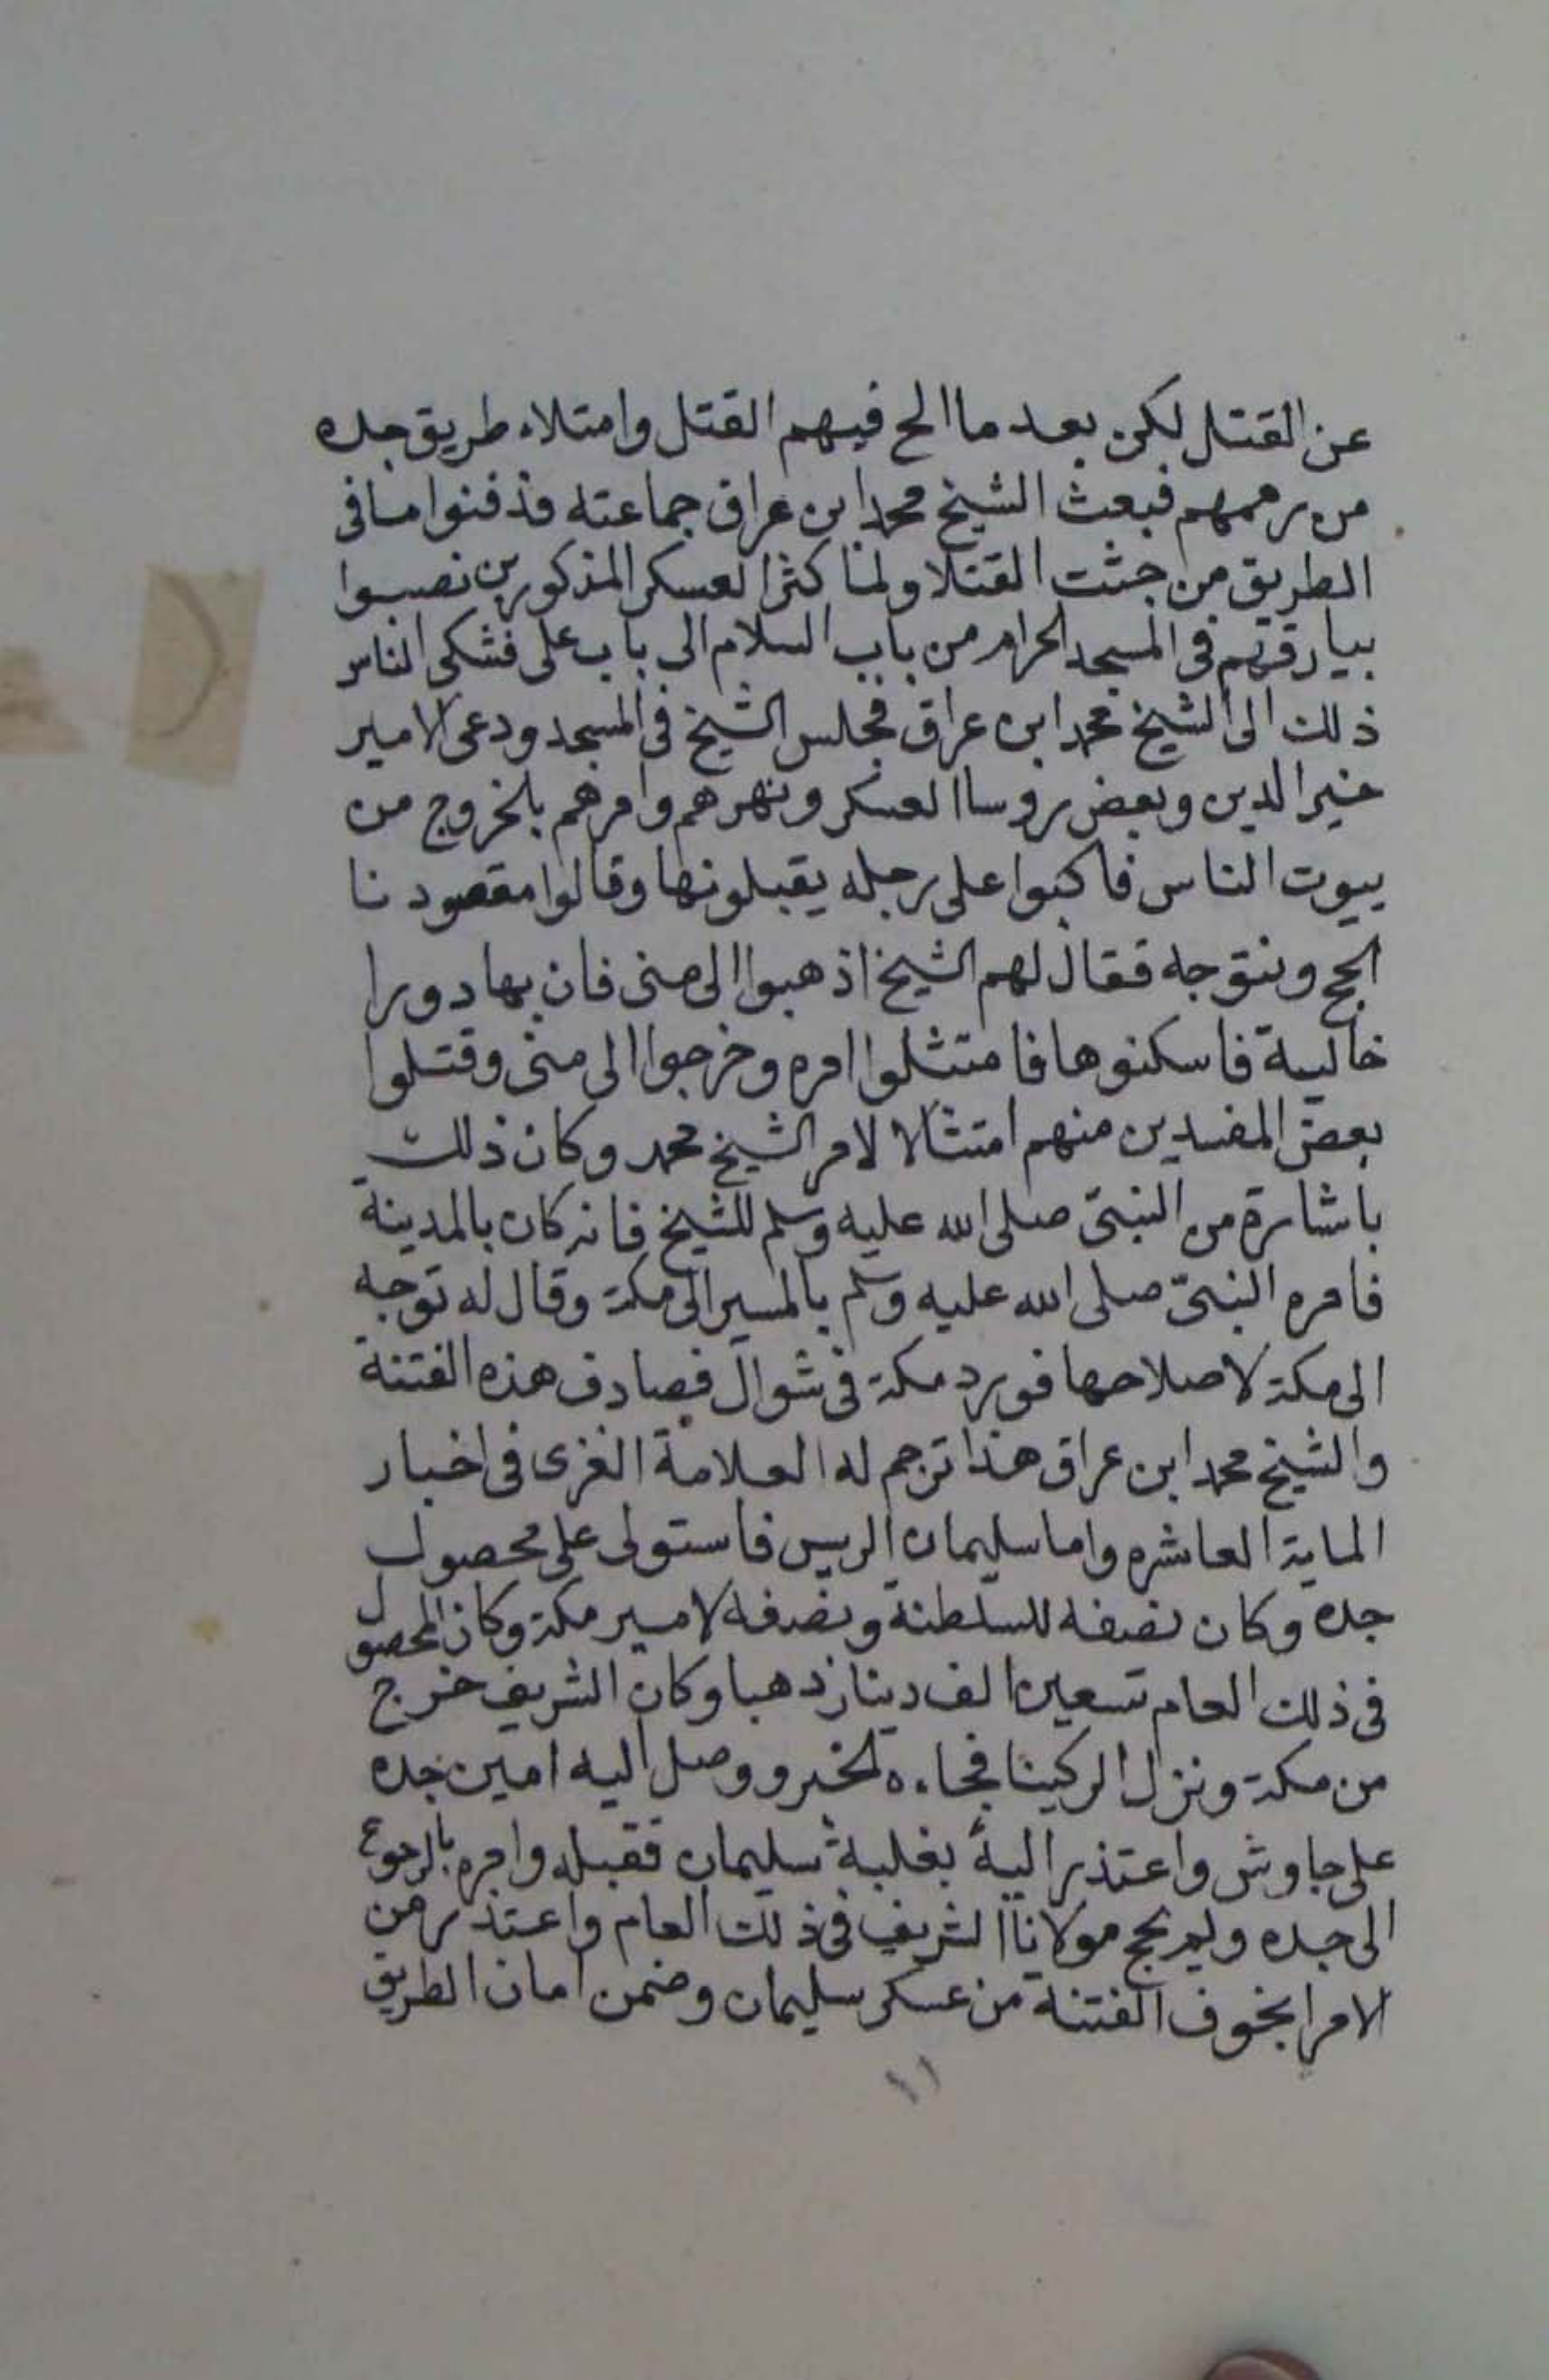 عن القتل لكن بعد ما الح فيهم القتل وامتلاء طريق جده
من رممهم فبعث الشيخ محمد ابن عراق جماعته فدفنوا ما فى
الطريق من جثت القتلا ولما كثر العسكر المذكورين نصبوا
بيارقهم فى المسجد الحرام من باب السلام الى باب على فشكى الناس
ذلك الى الشيخ محمد ابن عراق فجلس الشيخ فى المسجد ودعى الامير
خير الدين وبعض روسا العسكر ونهرهم وامرهم بالخروج من
بيوت الناس فاكبوا على رجله يقبلونها وقالوا مقصودنا
الحج ونتوجه فقال لهم الشيخ اذهبوا الى منى فان بها دورا
خالية فاسكنوها فامتثلوا امره وخرجوا الى منى وقتلوا
بعض المفسدين منهم امتثالا لامر الشيخ محمد وكان ذلك
باشارة من النبىّ صلى الله عليه وسلم للشيخ فانه كان بالمدينة
فامره النبىّ صلى الله عليه وسلم بالمسير الى مكة وقال له توجه
الى مكة لاصلاحها فورد مكة فى شوال فصادف هذه الفتنة
والشيخ محمد ابن عراق هذا ترجم له العلامة الغزى فى اخبار
الماية العاشره واما سليمان الريس فاستولى على محصول
جده وكان نصفه للسلطنة ونصفه لامير مكة وكان المحصول
فى ذلك العام تسعين الف دينار ذهبا وكان الشريف خرج
من مكة ونزل الركينا فجاءه الخبر ووصل اليه امين جده
على جاوش واعتذر اليه بغلبة سليمان فقبله وامره بالرجوع
الى جده ولم يحج مولانا الشريف فى ذلك العام واعتذر من
الامرا بخوف الفتنة من عسكر سليمان وضمن امان الطريق
١١